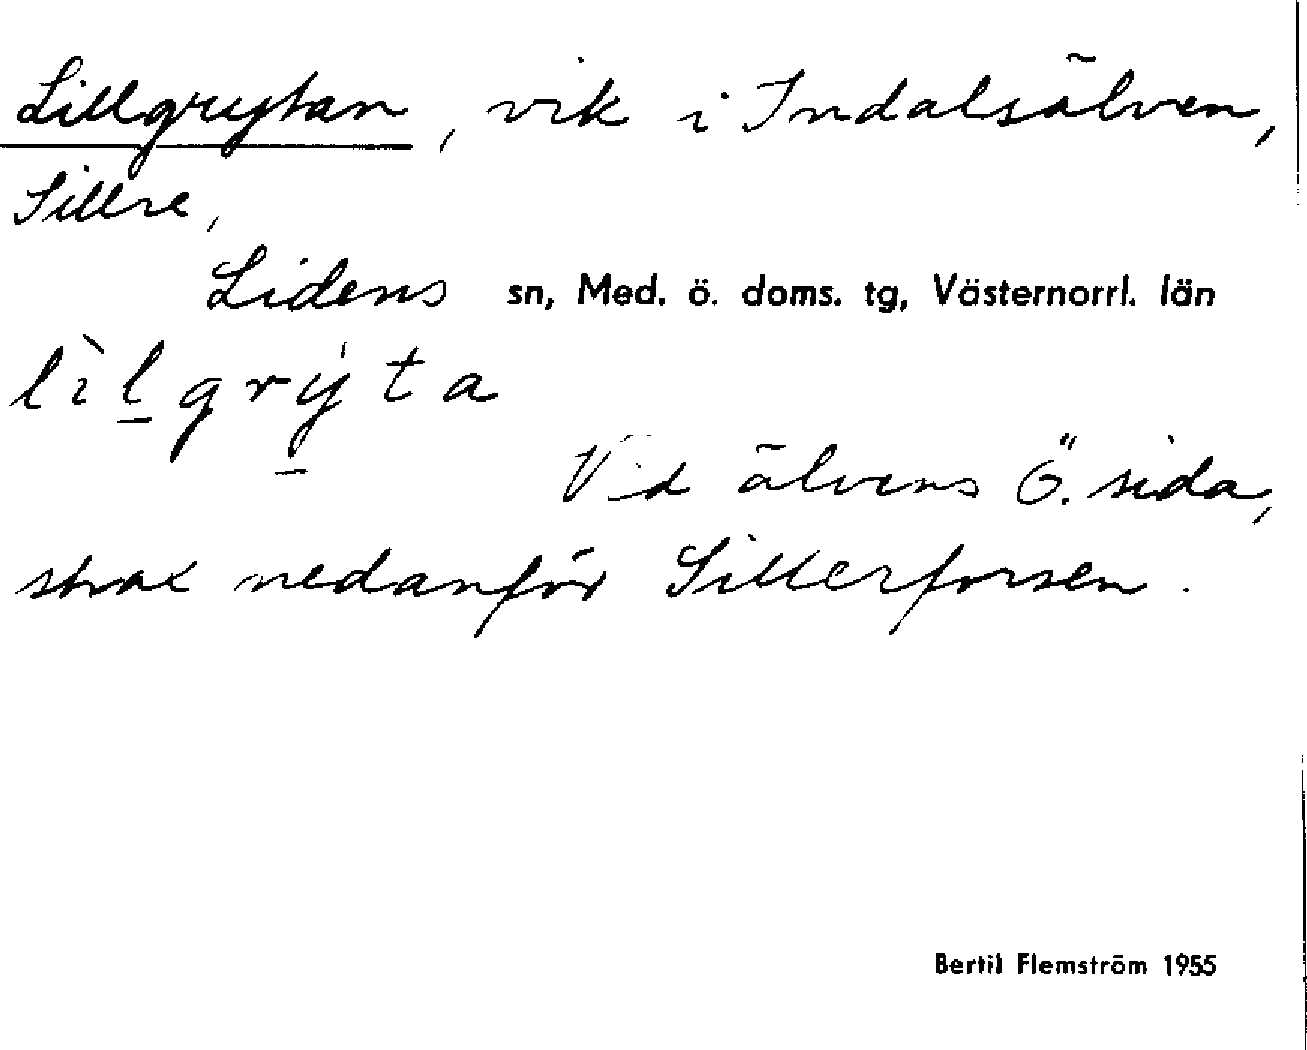 Lillgrytan, vik i Indalsälven,
Sillre,
Lidens sn, Med. ö. doms. tg, Västernorrl. län
lìl̲grý̲ta
Vid älvens Ö. sida,
strax nedanför Sillerforsen.
Bertil Flemström 1955